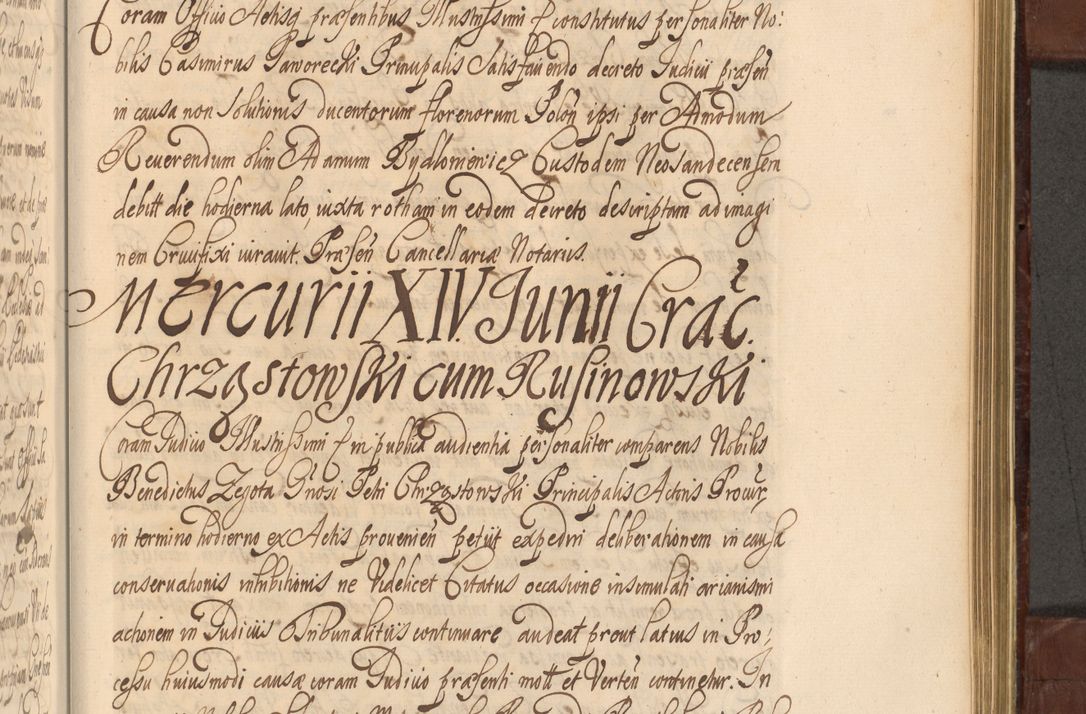 Coram Officio Actisq praesentibus Illustrissimi ff constitutus personaliter No:
bilis Casimirus Jaworecki Principalis Satisfaciendo decreto Judicii praesen
in causa non Solutionis ducentorum florenorum Polon ipsi per Admodum
Reverendum olim Adamum Bydloniewicz Custodem Neosandecensem
debitt die hodierna lato, iuxta rotham in eodem decreto descriptam ad imagi
nem Crucifixi iuravit. Praesen Cancellariae Notarius.
Mercurii XIV. Junii Crac.
Chrząstowski cum Rusinowski
Coram Judicio Illustrissimi ff in publica audientia personaliter comparens Nobilis
Benedictus Zegota Gnosi Petri Chrząstowski Principalis Actoris Procur
in termino hodierno ex Actis provenien petiit expediri deliberationem in causa
conservationis inhibitionis ne Videlicet Citatus occasione insimulati arianismi
actionem in Judiciis Tribunalitiis continuare audeat prout latius in Pro:
cessu huiusmodi causae coram Judicio praesenti mott et Verten continetur. In